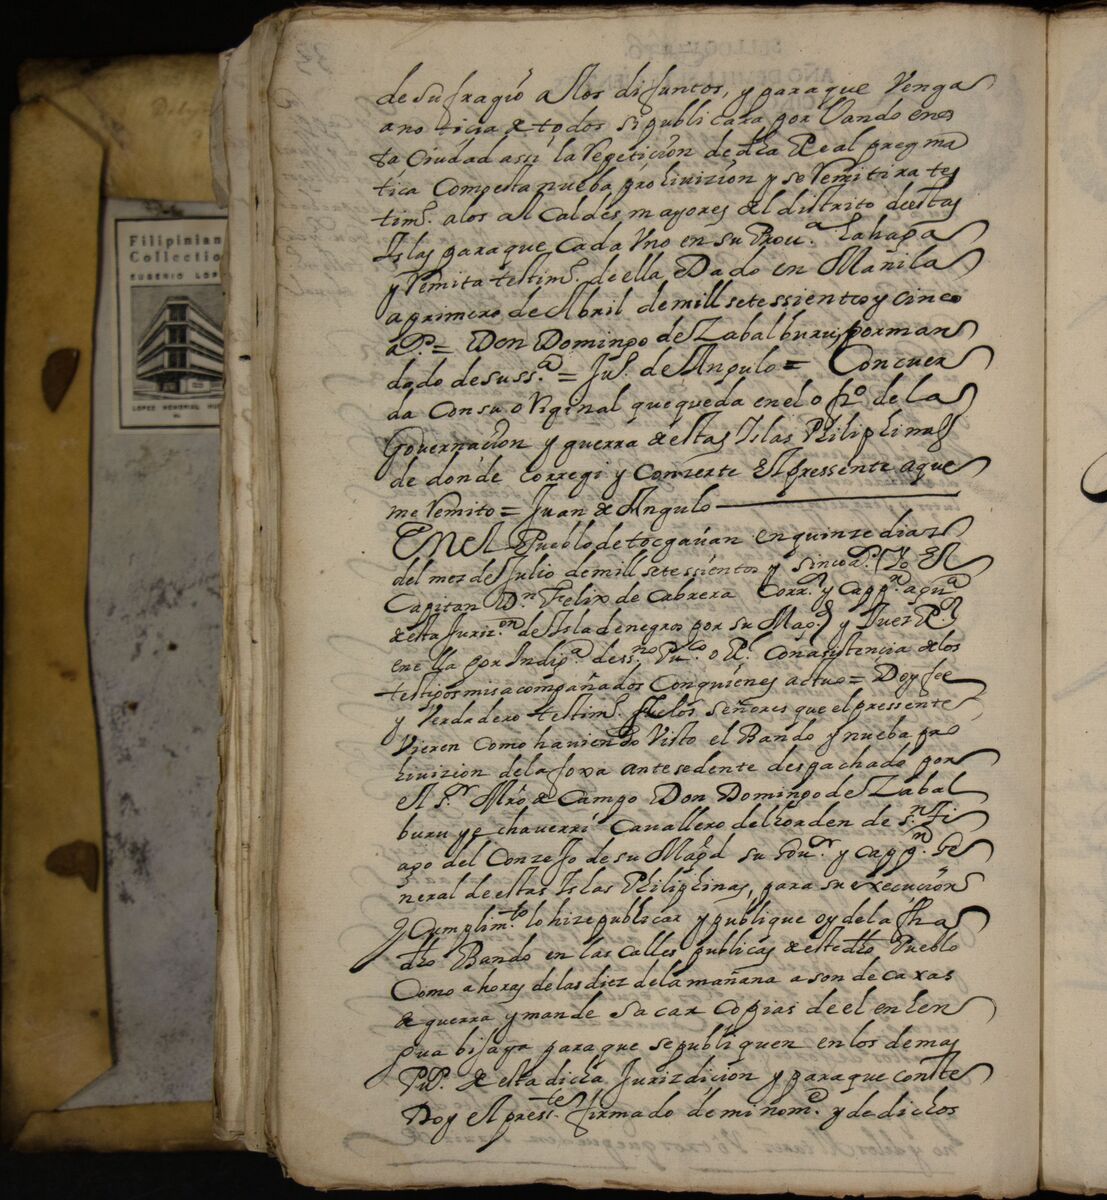 Filipinian
Collectio
EUGENIO LOP
LOPEZ MEMORIAL MU
de sufragio a llos difuntos, y para que Venga
a noticia de todos se publicara por Vando en es
ta Ciudad assi la Repeticion de dha Real pregma
tica Como esta nueba prohivizion y se Remitira tes
timo. a los alCaldes mayores del distrito de estas
Islas para que Cada Uno en su Proua. la haga
y Remita testimo. de ella Dado en Manila
a primero de Abril de mill setessientos y cinco
as. = Don Domingo de Zabalburu, por man
dado de su ssa. = Jun. de Angulo = Concuer
da Con su original que queda en el offo. de la
Governacion y guerra de estas Islas Philiphinas
de donde Corregi y Conzerte El pressente a que
me Remito = Juan de Angulo
En el Pueblo de tocgauan en quinze dias
del mez de Julio de mill setessientos y sinco as. Yo El
Capitan Dn. Felix de Cabrera Corror. y Cappn. a gua.
de esta Jurizon. de Isla de negros por su Magd. y Juez Rl.
en ella por Indispa. de ssno. Puco. o Rl. Con asistencia de los
testigos mis acompañados Con quienes actuo = Doy fee
y Verdadero testimo. A los señores que el pressente
Vieren Como haviendo Visto el Bando y nueba pro
hivizion de la foxa antesedente despachado por
el Sr. Mro de Campo Don Domingo de Zabal
buru y echaverri Cavallero del horden de Sn. Ti
ago del Conzejo de su Magd su Gour. y Cappn. Ge
neral de estas Islas Philiphinas, para su execucion
y Cumplimto. lo hize publicar y publique oy de la fha
dho Bando en las calles publicas de este dho Pueblo
Como a horas de las diez de la mañana a son de caxas
de guerra y mande sacar Copias de el en len
gua bisaya para que se publiquen en los demas
Pus. de esta dicha Jurizdicion y para que conste
Doy el presste. firmado de mi nome. y de dichos